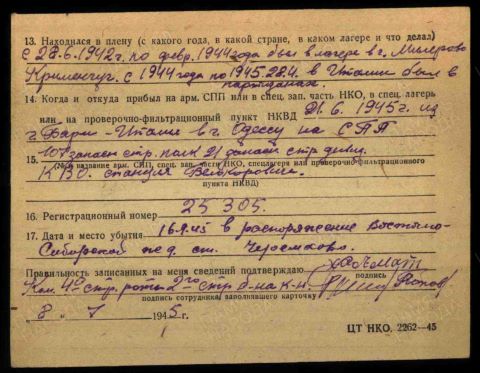 13. Находился в плену (с какого года, в какой стране, в каком лагере и что делал)
с 28.6.1942г. по февр. 1944 года был в лагере в г. Миллерово
Кременчуг. с 1944 года по 1945.28.4. в Италии был в
партизанах.
14. Когда и откуда прибыл на арм. СПП или в спец. зап. часть НКО, в спец. лагерь
или на проверочно-фильтрационный пункт НКВД 21.6.1945г. из
г. Бари - Италии в г. Одессу на СПП
107 запасн стр. полк 21 запасн стр. дивиз.
15. (№ и название арм. СПП, спец. зап. части НКО, спецлагеря или проверочно-фильтрационного
КВО. станция
пункта НКВД)
16. Регистрационный номер 25 305.
17. Дата и место убытия 16.9.45 в распоряжение Восточно-
Сибирской жед. ст. Черемхово.
Правильность записанных на меня сведений подтверждаю
подпись
Ком. 4й стр. роты 2го стр б-на к-н. Попов
подпись сотрудника, заполнявшего карточку
" 8 " 7 1945 г.
ЦТ НКО. 2262—45